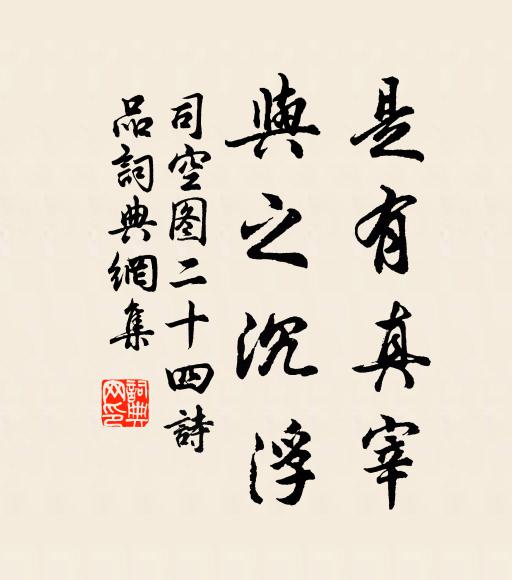 是有真宰
與之沉浮
司空图二十四詩
品詞典網集
詞典网印